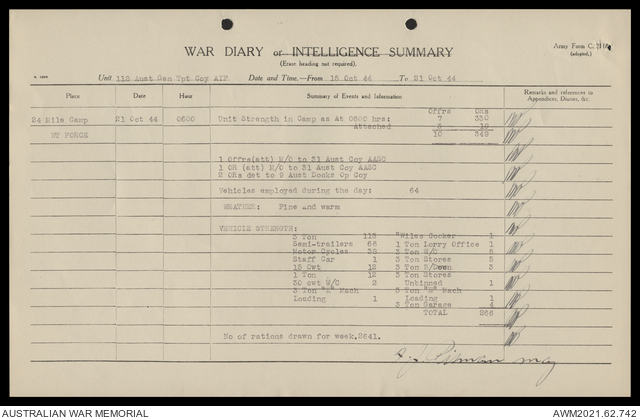 WAR DIARY or INTELLIGENCE SUMMARY
(Erase heading not required).
Army Form C.
(adapted.)
Unit 118 Aust Gen Tpt Coy AIF Date and Time.—From 15 Oct 44 To 21 Oct 44
Place Date Hour Summary of Events and Information Remarks and references to Appendices, Diaries, &c.
Offrs ORs
24 Mile Camp 21 Oct 44 0600 Unit Strength in Camp as At 0600 hrs: 7 330
Attached 3 19
NT FORCE 10 349
1 Offrs(att) M/O to 31 Aust Coy AASC
1 OR (att) M/O to 31 Aust Coy AASC
2 ORs det to 9 Aust Docks Op Coy
Vehicles employed during the day: 64
WEATHER: Fine and warm
VEHICLE STRENGTH:
3 Ton 115 "Wiles Cooker 1
Semi-trailers 66 1 Ton Lorry Office 1
Motor Cycles 38 3 Ton W/C 5
Staff Car 1 3 Ton Stores 5
15 Cwt 12 3 Ton B/Down 3
1 Ton 12 3 Ton Stores
30 cwt W/C 2 Unbinned 1
3 Ton "L" Mach 3 Ton "M" Mach
Loading 1 Loading 1
3 Ton Garage 4
TOTAL 266
No of rations drawn for week, 2641.
Maj
AUSTRALIAN WAR MEMORIAL AWM2021.62.742